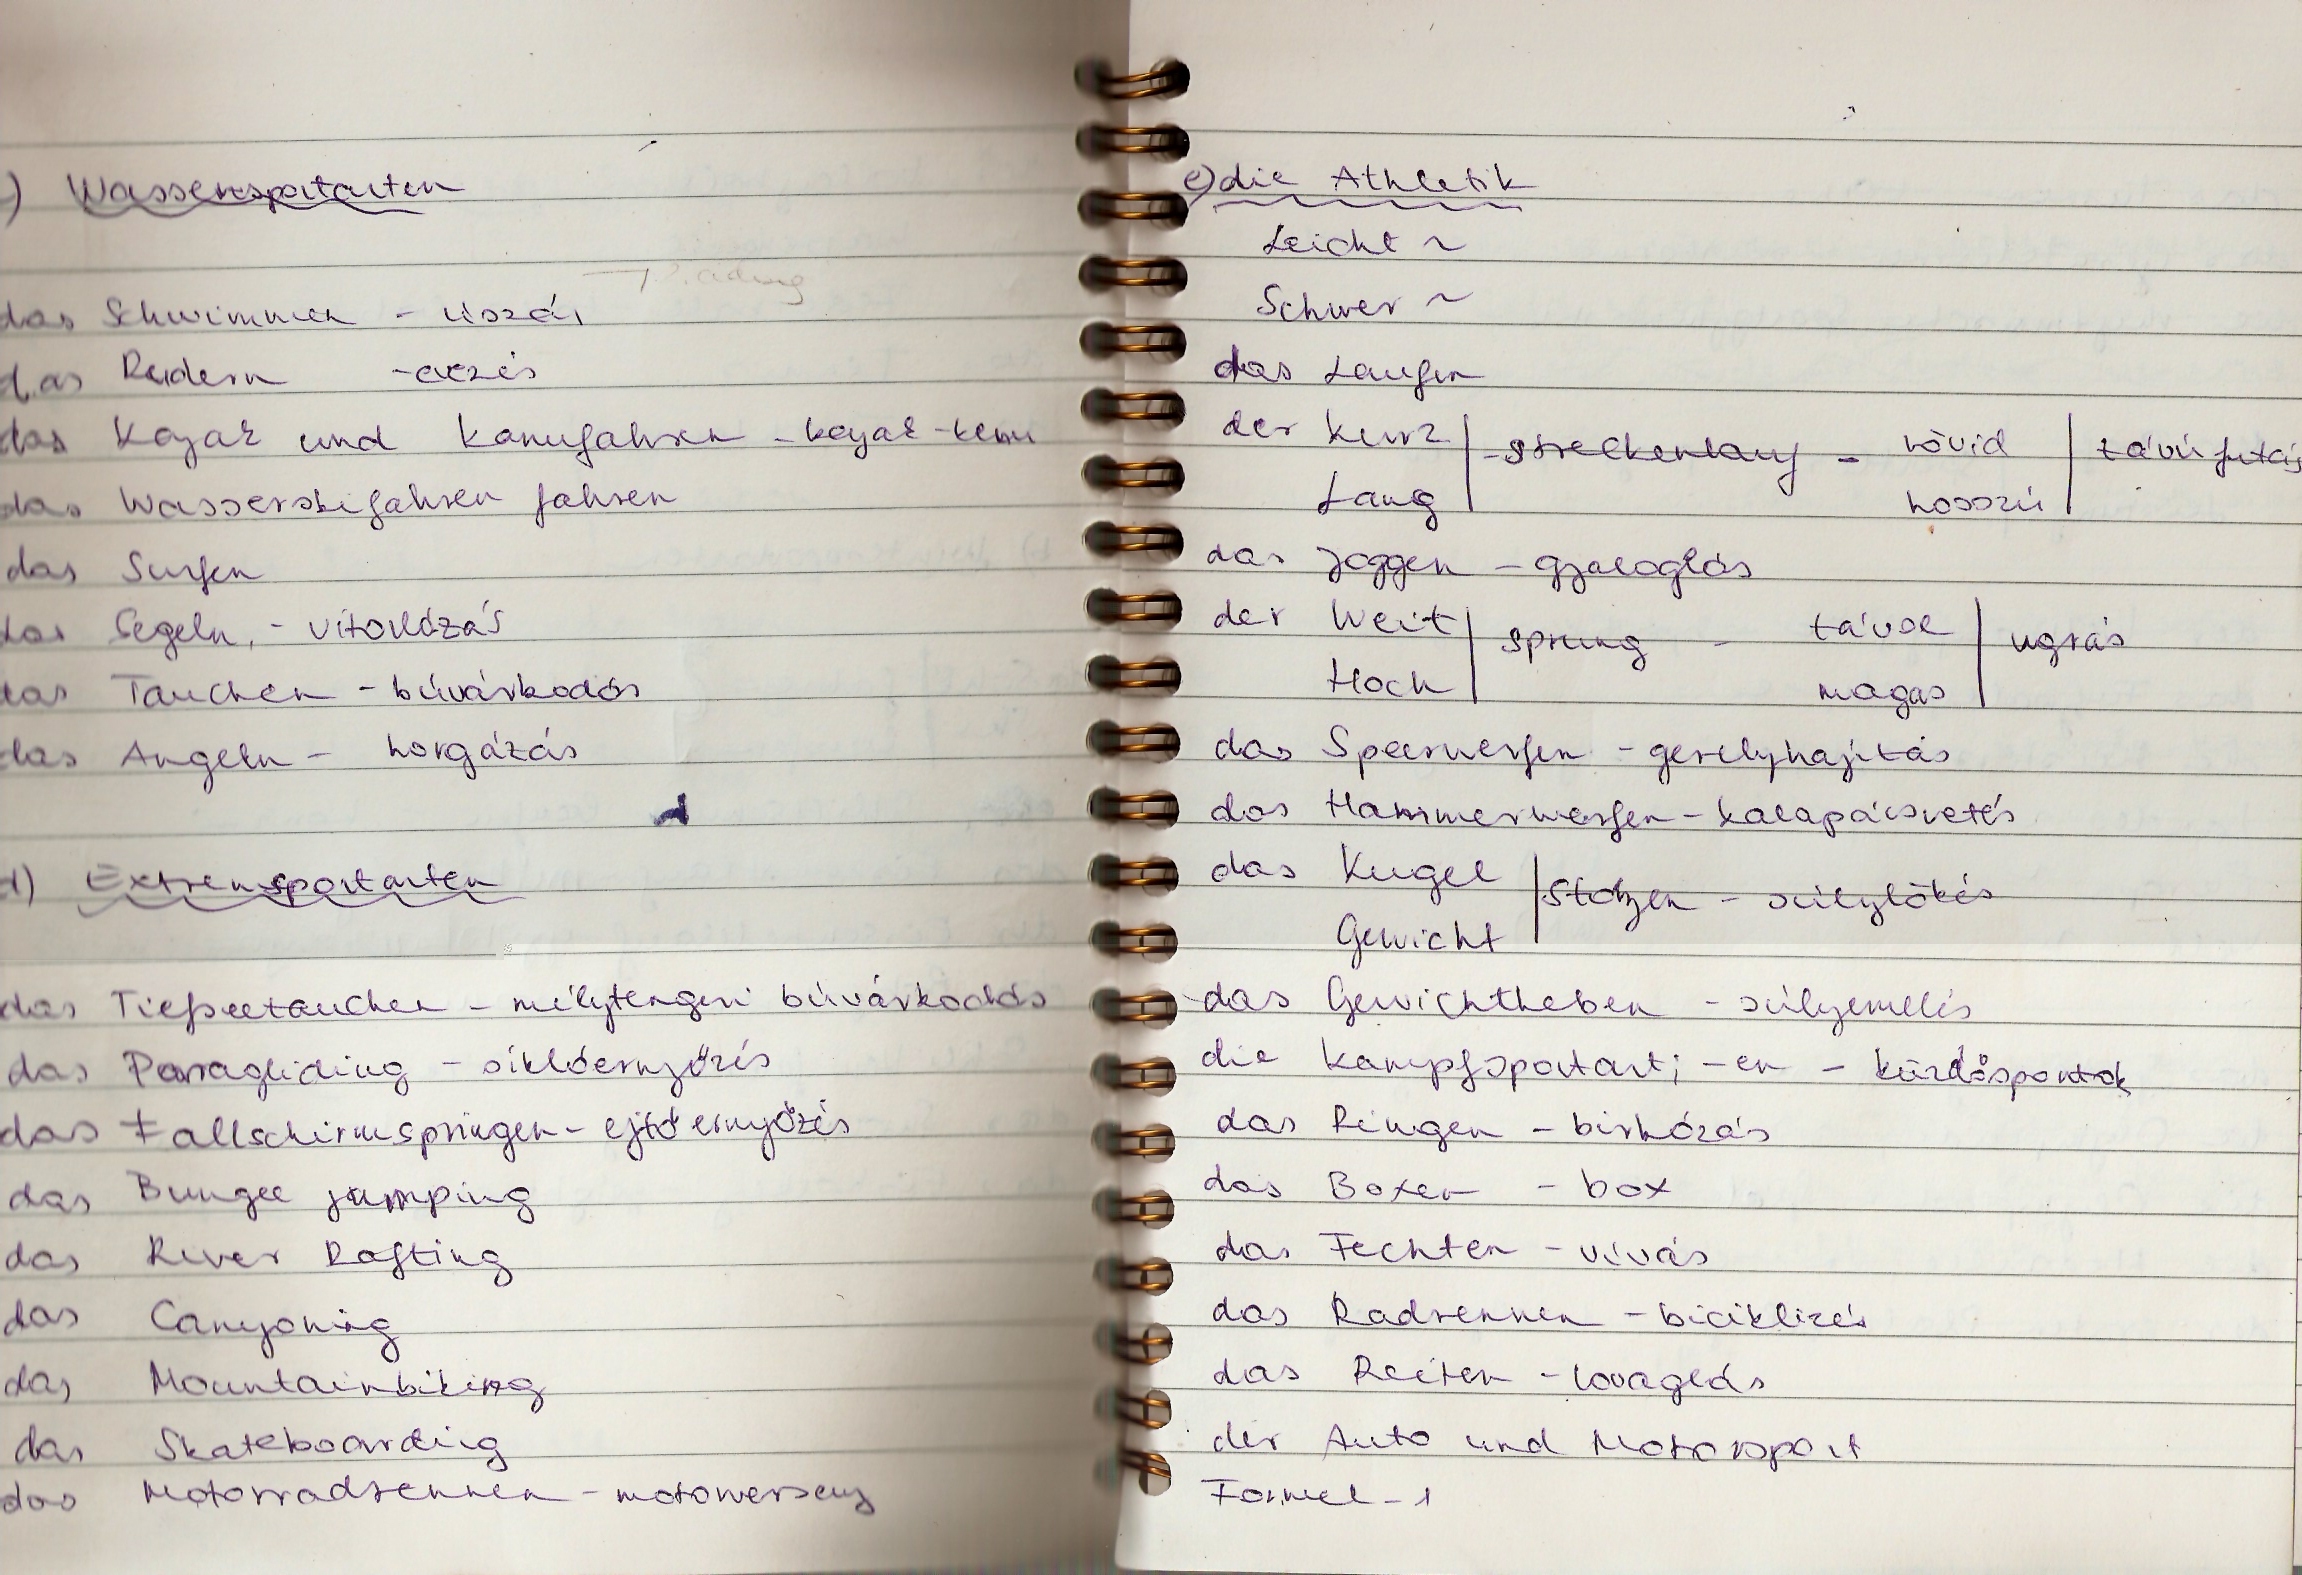 ) Wassersportarten
das Schwimmen - úszás
das Rudern - evezés
das Kajak und Kanufahren - kajak-kenu
das Wasserskifahren fahren
das Surfen
das Segeln, - vitorlázás
das Tauchen - búvárkodás
das Angeln - horgázás
d) Extremsportarten
das Tiefseetauchen - mélytengeri búvárkodás
das Paragliding - siklóernyőzés
das Fallschirmspringen - ejtőernyőzés
das Bungee jumping
das River Rafting
das Canyoning
das Mountainbiking
das Skateboarding
das Motorradrennen - motorverseny
e) die Athletik
Leicht ~
Schwer ~
das Laufen
der Kurz | -streckenlauf - rövid | távú futás
Lang | hosszú |
das Joggen - gyaloglás
der Weit | sprung - távol | ugrás
Hoch | magas |
das Speerwerfen - gerelyhajítás
das Hammerwerfen - kalapácsvetés
das Kugel | stoßen - súlylökés
Gewicht |
das Gewichtheben - súlyemelés
die Kampfsportart; -en - küzdősportok
das Ringen - birkózás
das Boxen - box
das Fechten - vívás
das Radrennen - biciklizés
das Reiten - lovaglás
der Auto und Motorsport
Formel - 1